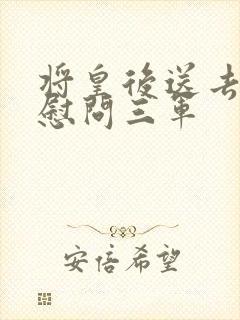 将皇後送去
慰問三軍
安倍希望